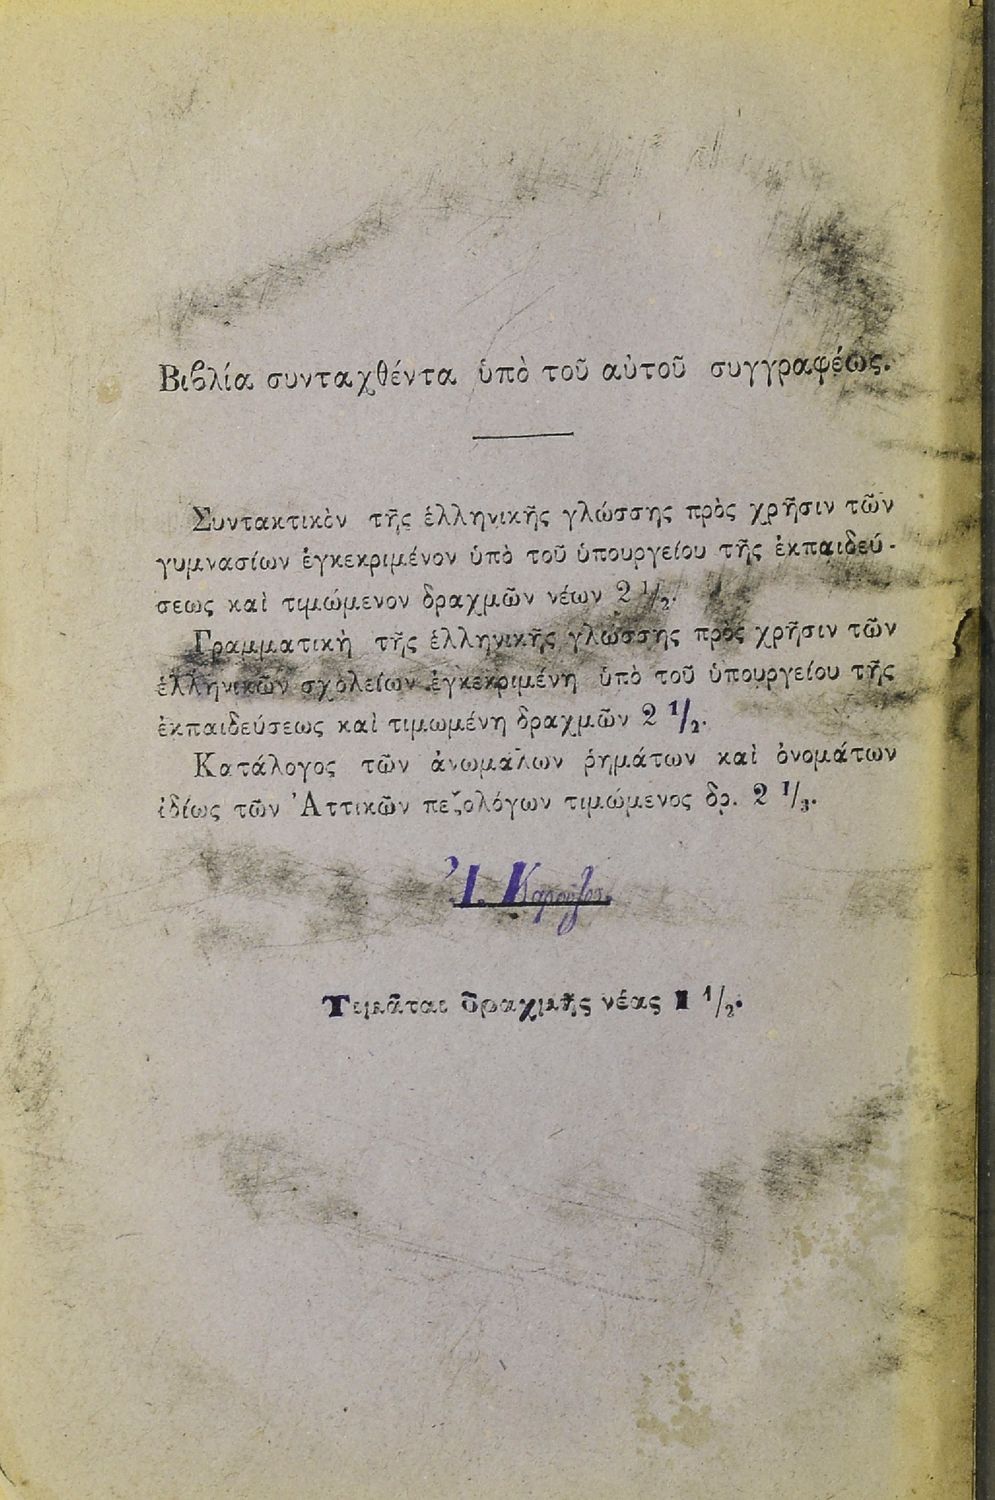 Βιβλία συνταχθέντα ὑπὸ τοῦ αὐτοῦ συγγραφέως.
Συντακτικὸν τῆς ἑλληνικῆς γλώσσης πρὸς χρῆσιν τῶν
γυμνασίων ἐγκεκριμένον ὑπὸ τοῦ ὑπουργείου τῆς ἐκπαιδεύ-
σεως καὶ τιμώμενον δραχμῶν νέων 2 1/2.
Γραμματικὴ τῆς ἑλληνικῆς γλώσσης πρὸς χρῆσιν τῶν
ἑλληνικῶν σχολείων ἐγκεκριμένη ὑπὸ τοῦ ὑπουργείου τῆς
ἐκπαιδεύσεως καὶ τιμωμένη δραχμῶν 2 1/2.
Κατάλογος τῶν ἀνωμάλων ῥημάτων καὶ ὀνομάτων
ἰδίως τῶν Ἀττικῶν πεζολόγων τιμώμενος δρ. 2 1/3.
Ἰ.
Τιμᾶται δραχμῆς νέας 1 1/2.